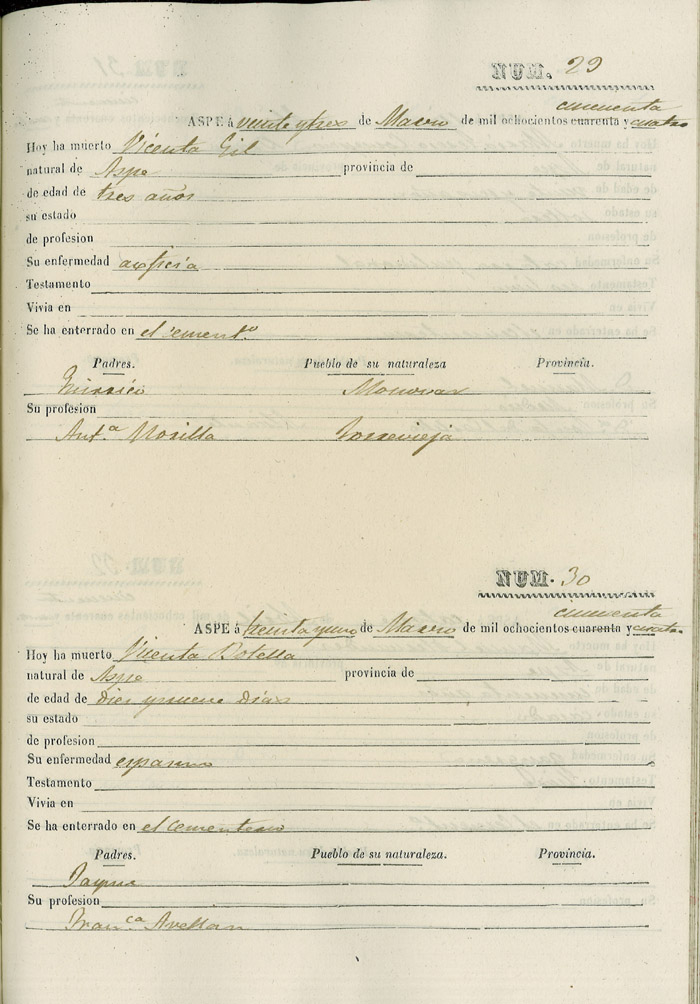 NUM. 29
cincuenta
ASPE á veinte y tres de Marzo de mil ochocientos cuarenta y cuatro
Hoy ha muerto Vicenta Gil
natural de Aspe provincia de
de edad de tres años
su estado
de profesion
Su enfermedad
Testamento
Vivia en
Se ha enterrado en el cement.º
Padres. Pueblo de su naturaleza Provincia.
Monovar
Su profesion
Ant.ª Torrevieja
NUM. 30
cincuenta
ASPE á treinta y uno de Marzo de mil ochocientos cuarenta y cuatro
Hoy ha muerto Vicenta Botella
natural de Aspe provincia de
de edad de Diez y nueve Dias
su estado
de profesion
Su enfermedad espasmo
Testamento
Vivia en
Se ha enterrado en el Cementerio
Padres. Pueblo de su naturaleza. Provincia.
Jayme
Su profesion
Fran.ca Avellan